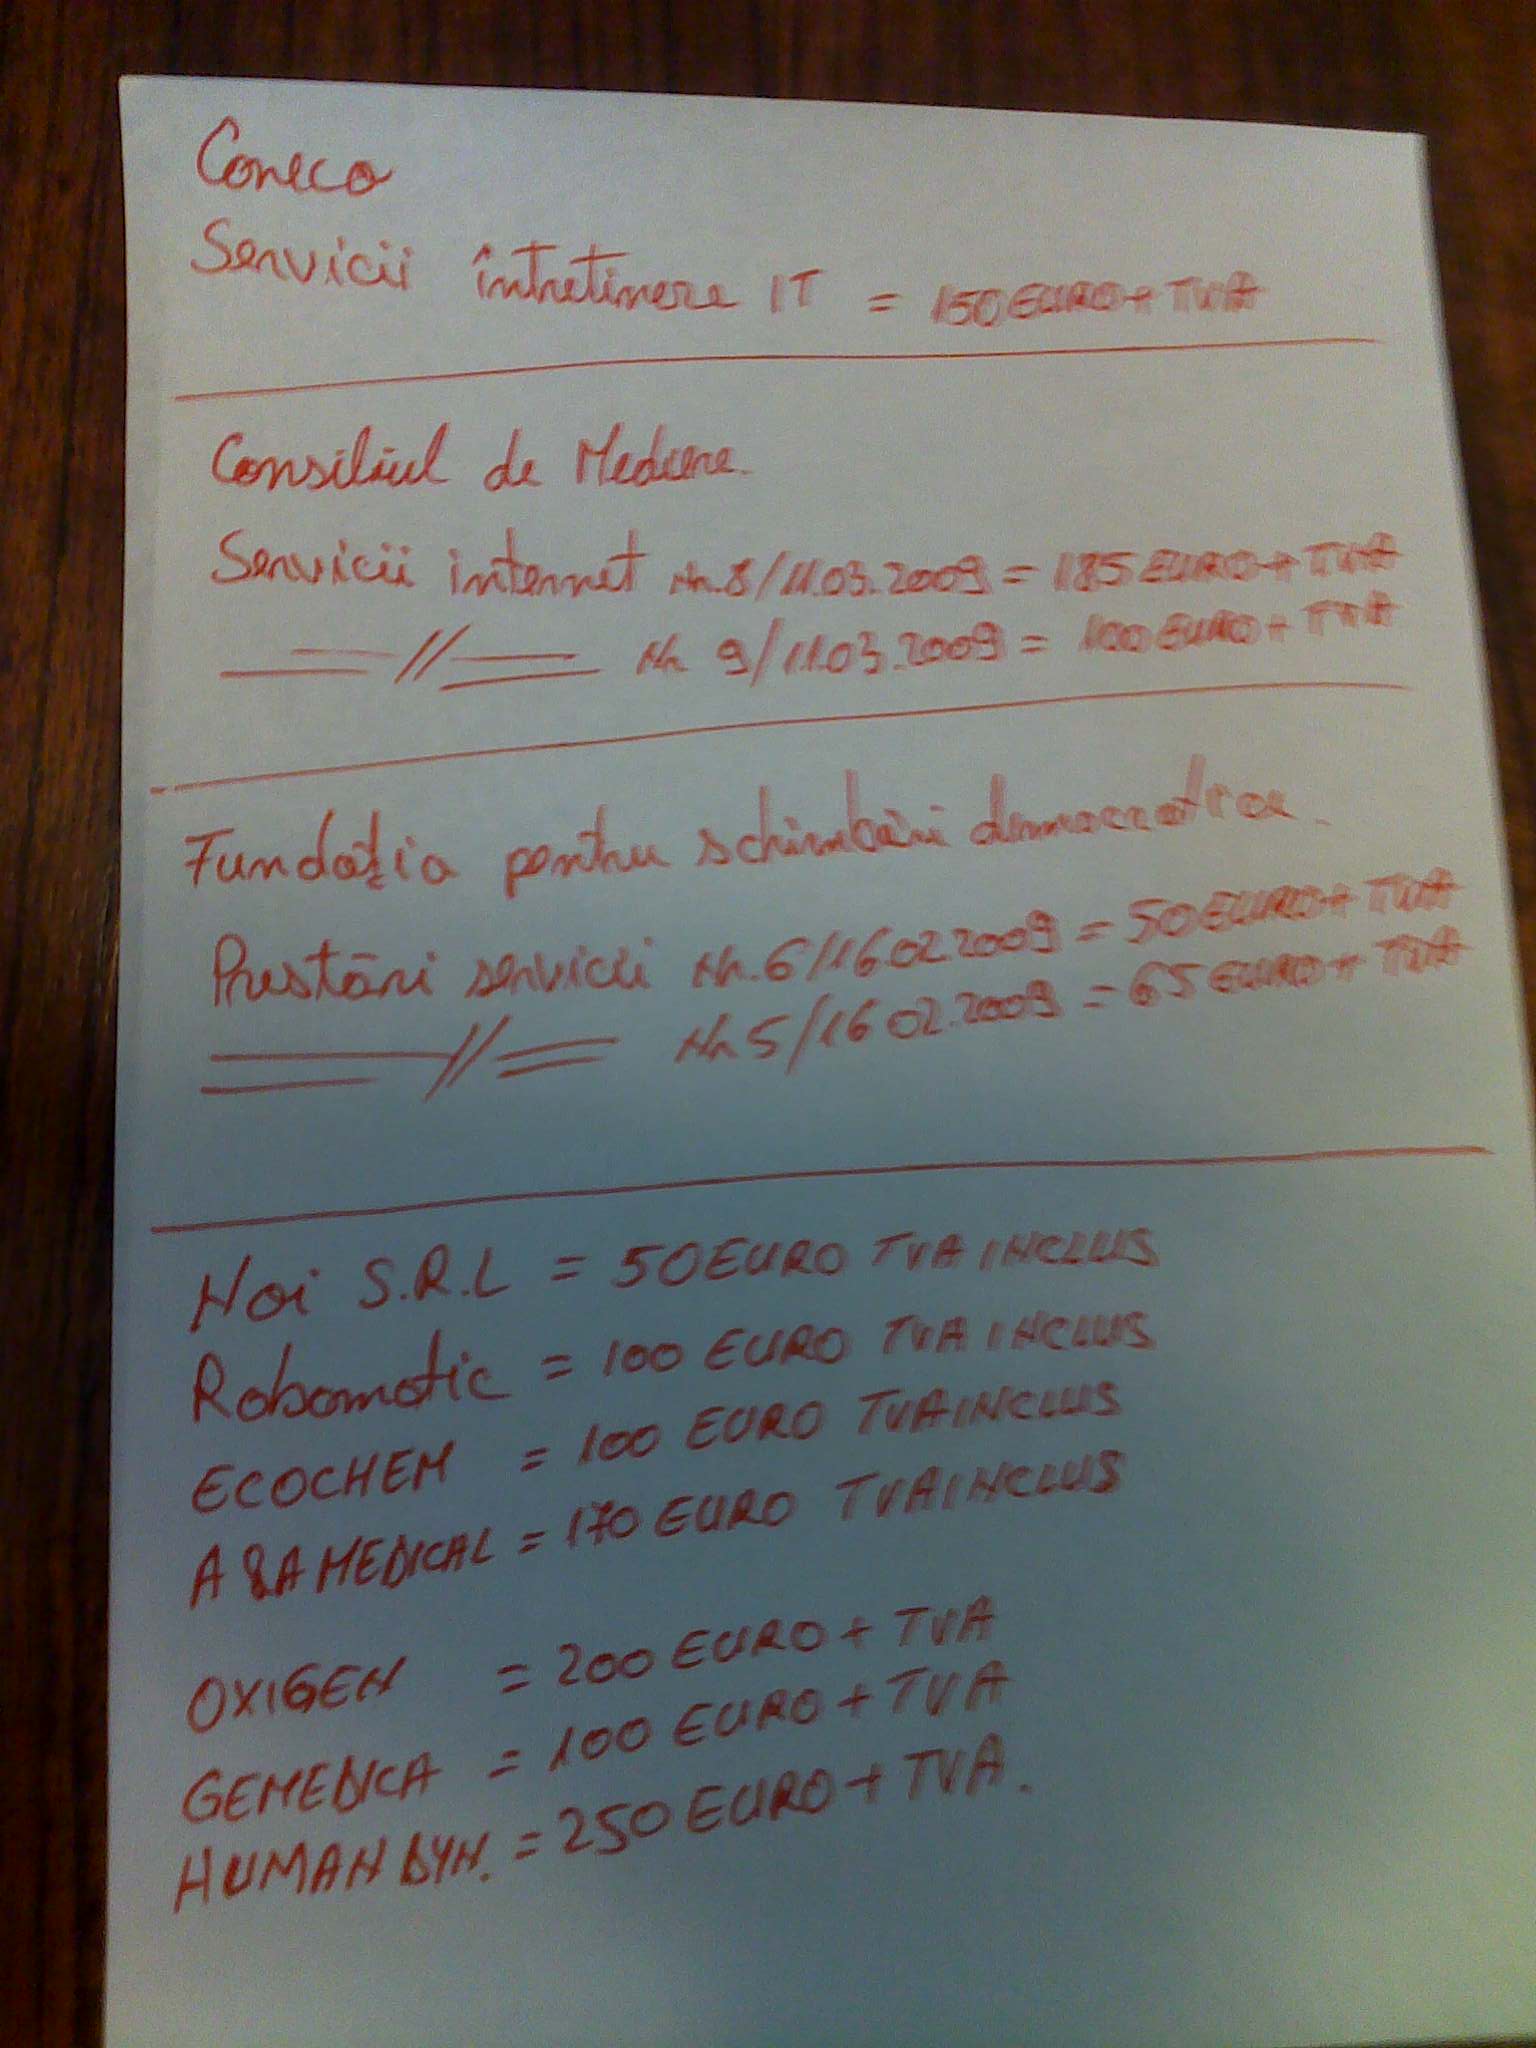 Coneco
Servicii întretinere IT = 150 EURO + TVA
Consiliul de Mediere.
Servicii internet Nr. 8/11.03.2009 = 185 EURO + TVA
// Nr 9/11.03.2009 = 100 EURO + TVA
Fundația pentru schimbări democratice.
Prestări servicii Nr. 6/16.02.2009 = 50 EURO + TVA
// Nr 5/16 02.2009 = 65 EURO + TVA
Noi S.R.L = 50 EURO TVA INCLUS
Robomatic = 100 EURO TVA INCLUS
ECOCHEM = 100 EURO TVA INCLUS
A&A MEDICAL = 170 EURO TVA INCLUS
OXIGEN = 200 EURO + TVA
GEMEDICA = 100 EURO + TVA
HUMAN DYN. = 250 EURO + TVA.